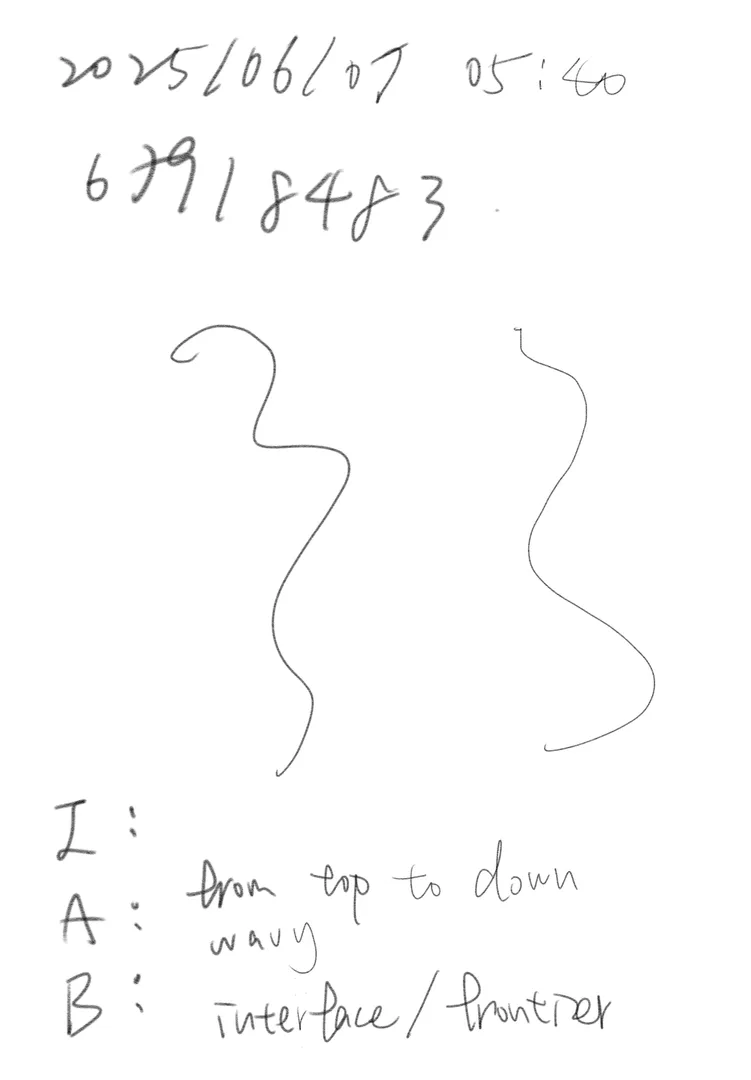 2025/06/07 05:40
67918483
I:
A: from top to down
wavy
B: interface/frontier